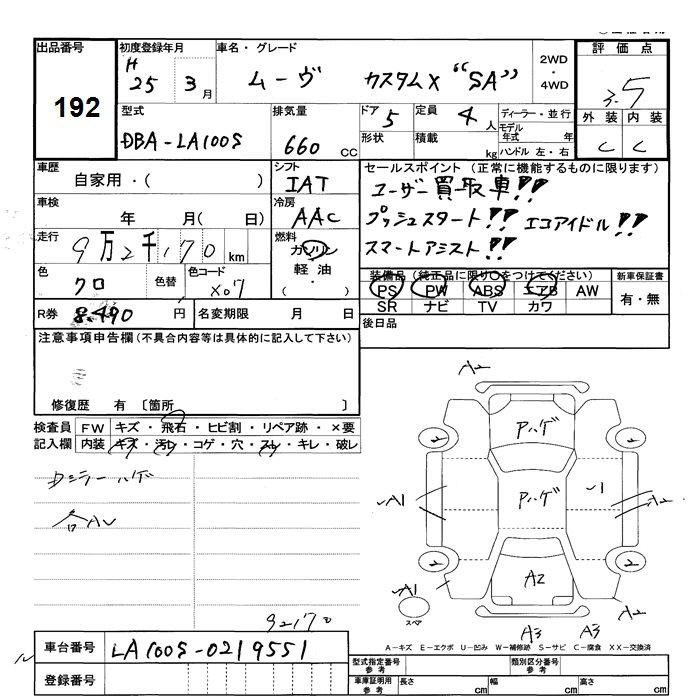 出品番号
192
初度登録年月
H
25 3月
車名・グレード
ムーヴ カスタムX "SA"
2WD
・
4WD
評価点
3.5
外装 内装
C C
型式
DBA-LA100S
排気量
660 CC
ドア 5
形状
定員 4 人
積載 kg
ディーラー・並行
モデル年式 年
ハンドル 左・右
車歴
自家用・( )
シフト
IAT
セールスポイント (正常に機能するものに限ります)
ユーザー買取車!!
プッシュスタート!! エコアイドル!!
スマートアシスト!!
車検
年 月(日)
冷房
AAC
走行
9万2千170 km
燃料
ガソリン
軽油・
( )
色
クロ
色替
色コード
X07
装備品 (純正品に限り○をつけてください)
PS PW ABS エアB AW
SR ナビ TV カワ
新車保証書
有・無
R券
8.490 円
名変期限 月 日
後日品
注意事項申告欄(不具合内容等は具体的に記入して下さい)
修復歴 有 〔箇所 〕
検査員 FW キズ・飛石・ヒビ割・リペア跡・×要
記入欄 内装 キズ・汚レ・コゲ・穴・スレ・キレ・破レ
Dシラーハゲ
各AU
A2
2 2
Pハゲ
A1 Pハゲ 1 A2
2 2
A2
A1 A2
スペア
A3 A3
92170
A-キズ E-エクボ U-凹み W-補修跡 S-サビ C-腐食 XX-交換済
車台番号 LA100S-0219551
登録番号
型式指定番号 参考
類別区分番号 参考
車庫証明用 参考
長さ cm 幅 cm 高さ cm